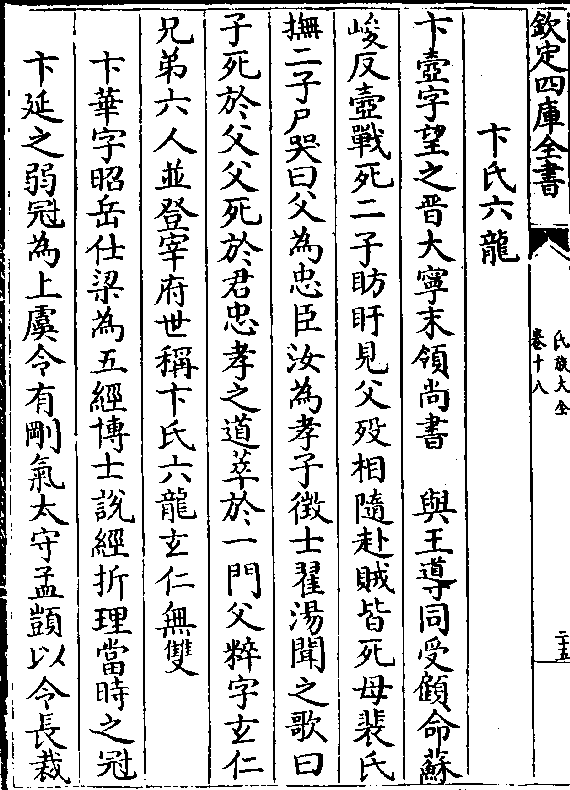 欽定四庫全書
氏族大全
卷十八
二十五
卞氏六龍
卞壼字望之晉大寧末領尚書　與王導同受顧命蘇
峻反壼戰死二子眆盱見父歿相隨赴賊皆死母裴氏
撫二子尸哭曰父為忠臣汝為孝子徴士翟湯聞之歌曰
子死於父父死於君忠孝之道萃於一門父粹字玄仁
兄弟六人並登宰府世稱卞氏六龍玄仁無雙
卞華字昭岳仕梁為五經博士說經折理當時之冠
卞延之弱冠為上虞令有剛氣太守孟顗以令長裁